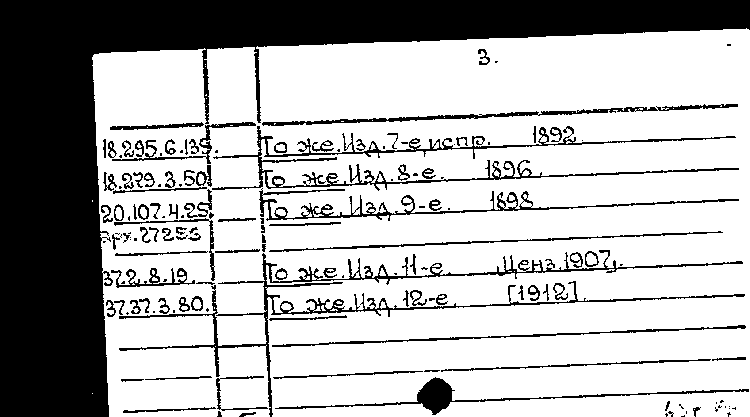 3.
18.295.6.139. То же. Изд. 7-е, испр. 1892
18.279.3.50. То же. Изд. 8-е. 1896.
20.107.4.25. То же. Изд. 9-е. 1898
арх. 27255
37.2.8.19. То же. Изд. 11-е. Ценз. 1907г.
37.37.3.80. То же. Изд. 12-е. [1912].